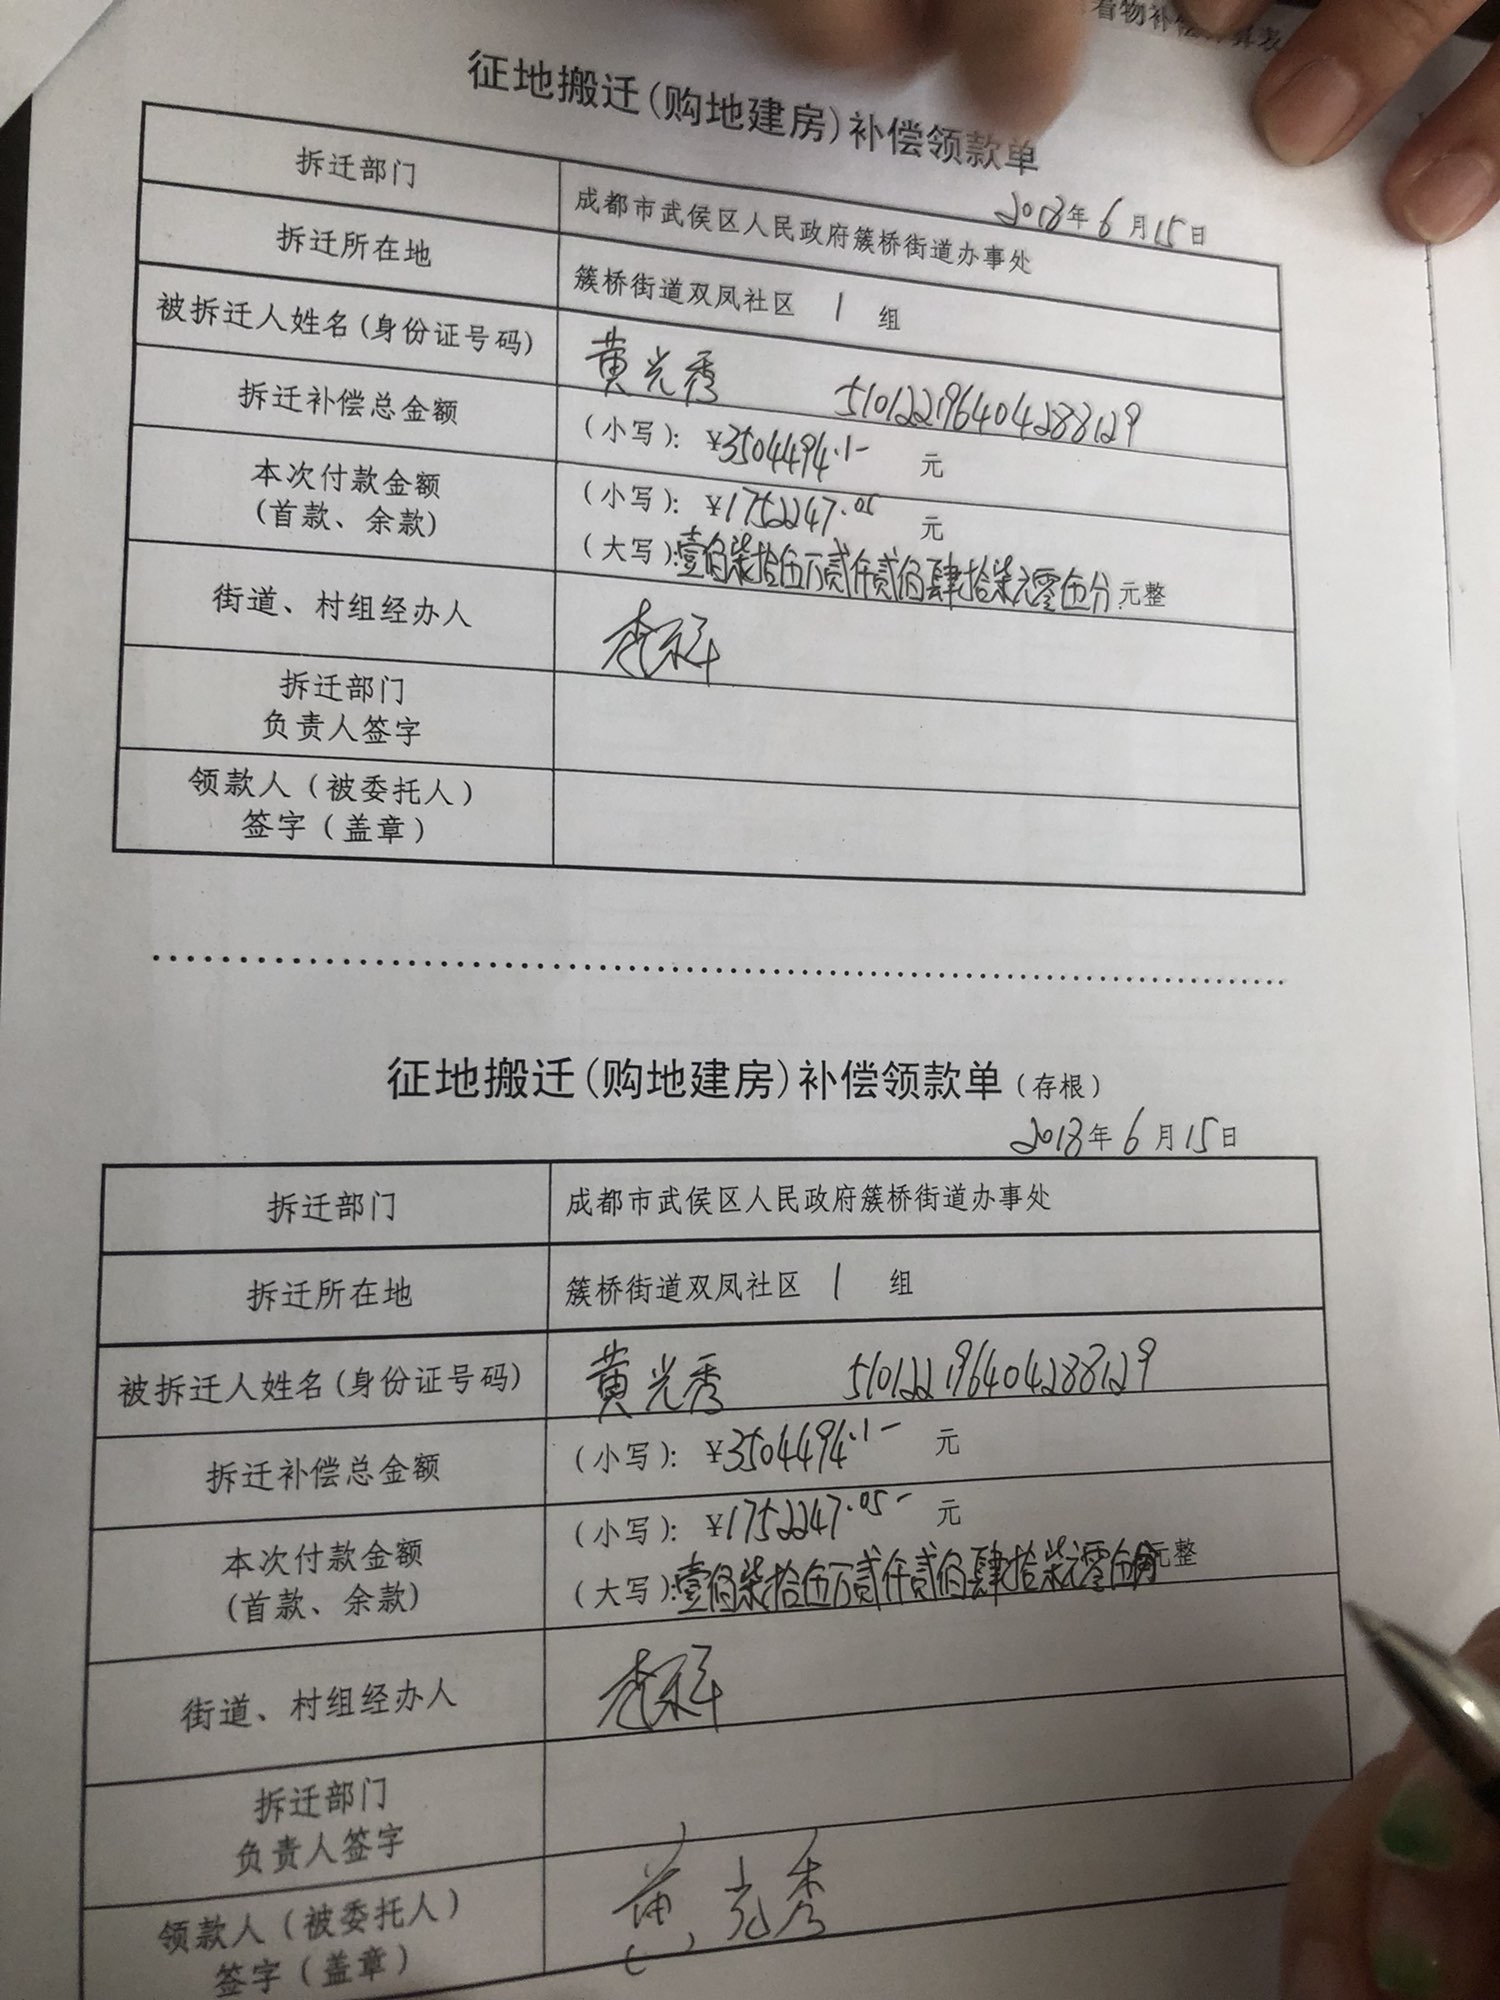 着物补偿计算表
征地搬迁(购地建房)补偿领款单
2018年6月15日
拆迁部门 成都市武侯区人民政府簇桥街道办事处
拆迁所在地 簇桥街道双凤社区 1 组
被拆迁人姓名(身份证号码) 黄光秀 510122196404288129
拆迁补偿总金额 (小写): ¥3504494.1- 元
本次付款金额 (小写): ¥1752247.05 元
(首款、余款) (大写):壹佰柒拾伍万贰仟贰佰肆拾柒元零伍分元整
街道、村组经办人
拆迁部门
负责人签字
领款人(被委托人)
签字(盖章)
征地搬迁(购地建房)补偿领款单(存根)
2018年6月15日
拆迁部门 成都市武侯区人民政府簇桥街道办事处
拆迁所在地 簇桥街道双凤社区 1 组
被拆迁人姓名(身份证号码) 黄光秀 510122196404288129
拆迁补偿总金额 (小写): ¥3504494.1- 元
本次付款金额 (小写): ¥1752247.05- 元
(首款、余款) (大写):壹佰柒拾伍万贰仟贰佰肆拾柒元零伍分元整
街道、村组经办人
拆迁部门
负责人签字
领款人(被委托人) 黄光秀
签字(盖章)